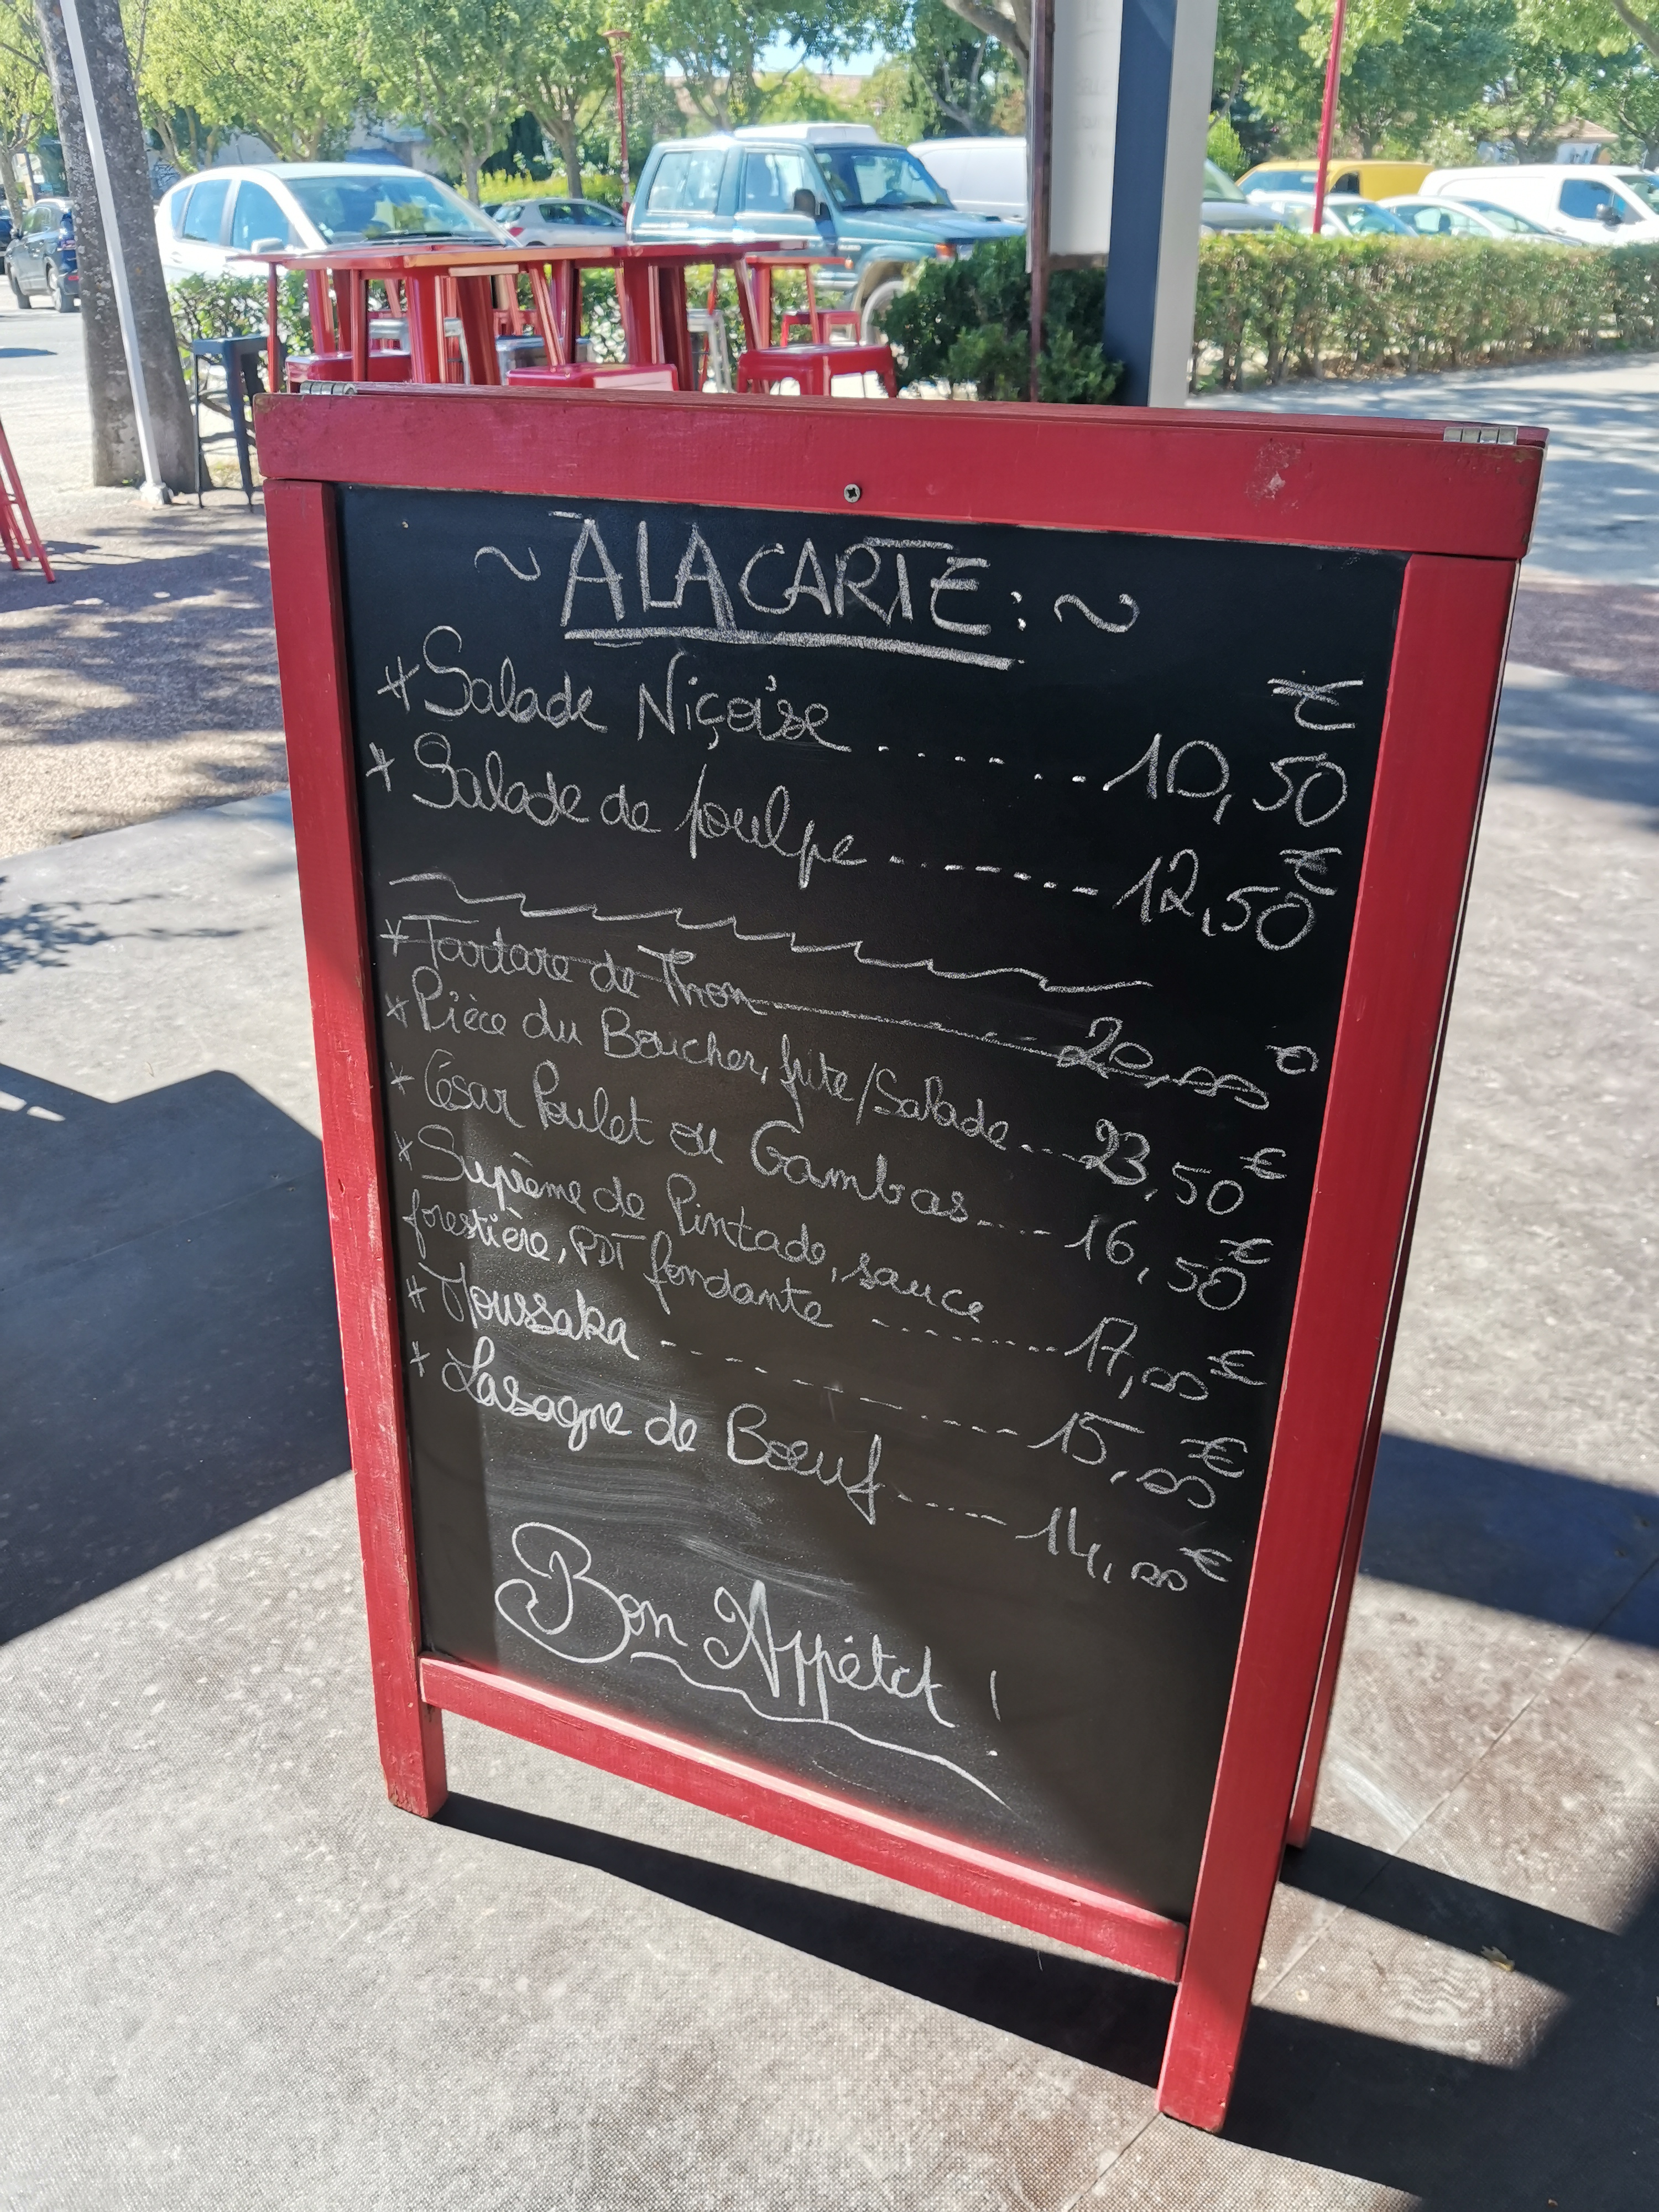 ~ A LA CARTE : ~
* Salade Niçoise ........ 10,50 €
* Salade de poulpe ------- 12,50 €
* Tartare de Thon 20,00 €
* Pièce du Boucher, frite/Salade...23,50 €
* César Poulet ou Gambas....16,50 €
* Suprême de Pintade, sauce
forestière, PDT fondante --------17,00 €
* Moussaka ----------15,00 €
* Lasagne de Boeuf-----14,00 €
Bon Appétit !